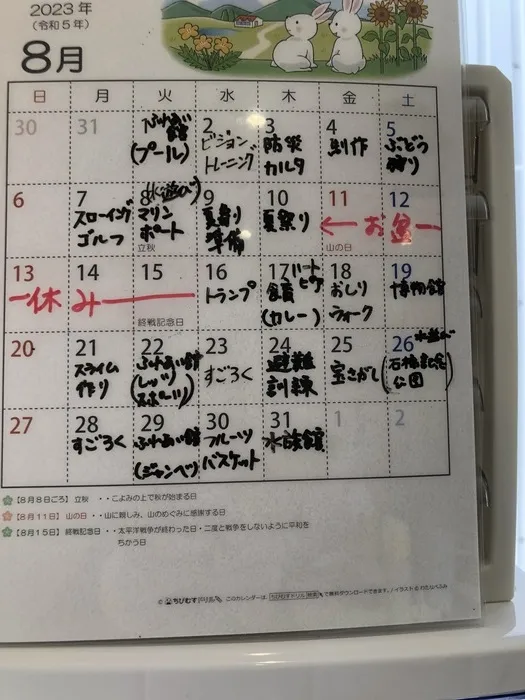 2023年
(令和5年)
8月
日 月 火 水 木 金 土
30 31 ふれあい館 (プール) 2 ビジョントレーニング 3 防災カルタ 4 制作 5 ぶどう狩り
6 7 スローイングゴルフ 8 (水遊び) マリンポート 立秋 9 夏祭り準備 10 夏祭り 11 ← お盆ー 山の日 12
13 ー休み 14 15 終戦記念日 16 トランプ 17 ハートピア 食育 (カレー) 18 おしりウォーク 19 博物館
20 21 スライム作り 22 ふれあい館 (レッツスポーツ) 23 すごろく 24 避難訓練 25 宝さがし 26 水遊び (石橋記念公園)
27 28 すごろく 29 ふれあい館 (ジャンベツ) 30 フルーツバスケット 31 水族館 1 2
【8月8日ごろ】立秋 ・・こよみの上で秋が始まる日
【8月11日】山の日 ・・山に親しみ、山のめぐみに感謝する日
【8月15日】終戦記念日 ・・太平洋戦争が終わった日・二度と戦争をしないように平和を
ちかう日
© ちびむすドリル このカレンダーは、ちびむすドリル 検索 で無料ダウンロードできます。/ イラスト © わたなべふみ